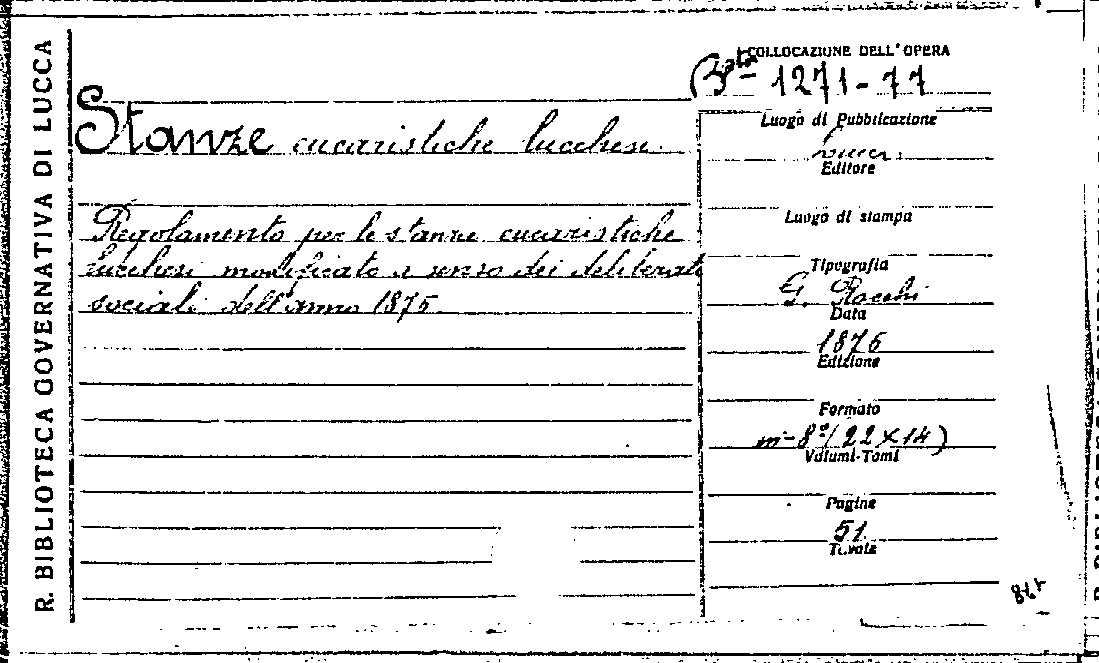 R. BIBLIOTECA GOVERNATIVA DI LUCCA
COLLOCAZIONE DELL'OPERA
Bta 1271-77
Stanze eucaristiche lucchesi.
Regolamento per le stanze eucaristiche
lucchesi modificato a senso dei deliberati
sociali dell'anno 1875.
Luogo di Pubblicazione
Lucca
Editore
Luogo di stampa
Tipografia
G. Rocchi
Data
1876
Edizione
Formato
in-8° (22×14)
Volumi-Tomi
Pagine
51
Tavole